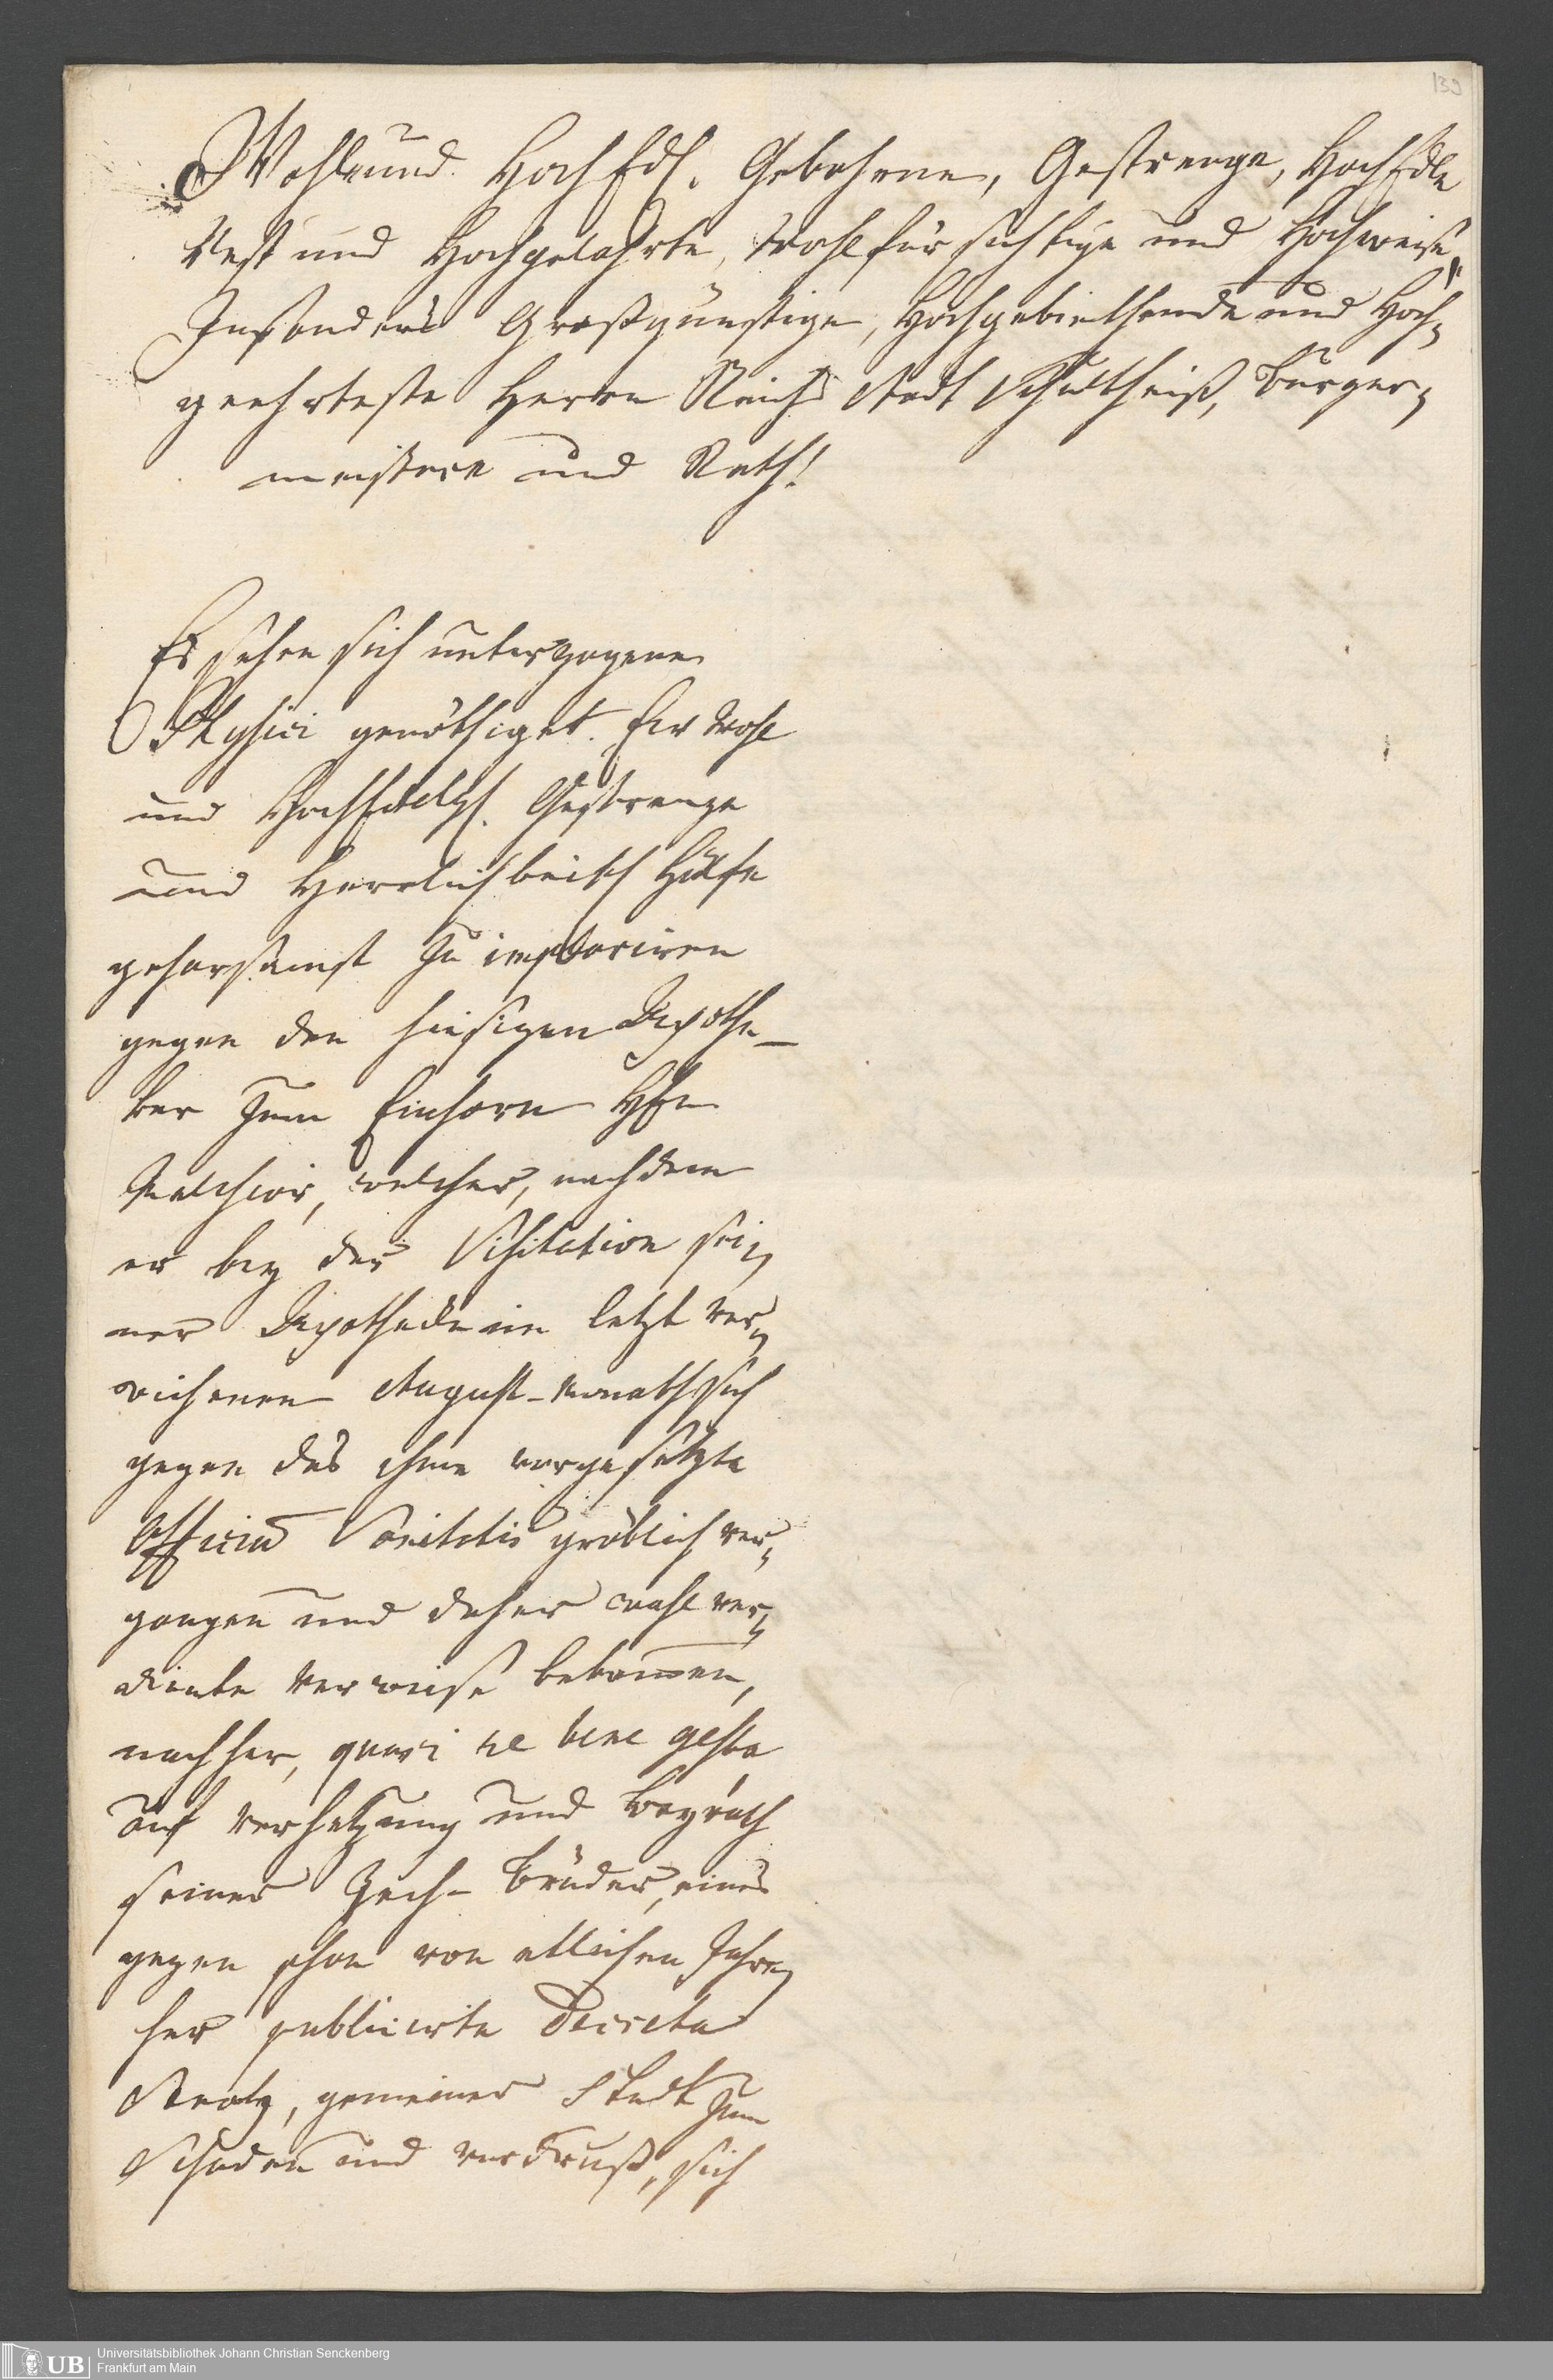 139
Wohl und HochEdl. Gebohrne, Gestrenge, HochEdle
Vest und Hochgelahrte, Wohlfürsichtige und Hochweise,
Insonders Großgünstige, Hochgebiethende und Hoch-
geehrteste Herren Reichs Stadt Schultheiß, Burger-
meistere und Rath!
Es sehen sich unterzogene
Physici genöthiget. Ew Wohl
und HochEdelgl. Gestrenge
und Herrlichkeits Hülfe
gehorsamst zu imploriren
gegen den hiesigen Apothe-
ker zum Einhorn Hℓn
Salchior, welcher, nachdem
er bey der Visitation sei-
ner Apothecke im letzt ver-
wichenen August-monath sich
gegen das ihme vorgesetzte
Officium Sanitatis gröblich ver-
gangen und daher wohl ver-
diente Verweise bekommen,
nachher, quasi re bene gesta
auf Verhetzung und Beyrath
seiner Zech-Brüder, eines
gegen schon von etlichen Jahren
her publicirte Decreta
Streits, gemeiner Stadt zum
Schaden und Verdruß, sich
UB Universitätsbibliothek Johann Christian Senckenberg
Frankfurt am Main